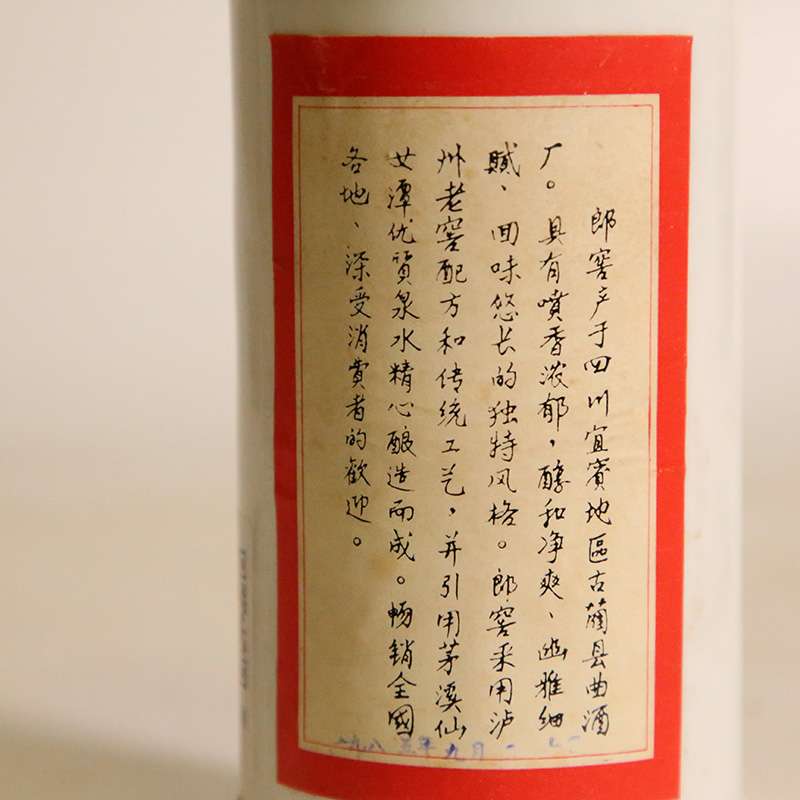 郎窖产于四川宜賓地區古蔺县曲酒
厂。具有噴香浓郁，醇和净爽、幽雅细
腻、回味悠长的独特风格。郎窖采用泸
州老窖配方和传统工艺，并引用茅溪仙
女潭优質泉水精心酿造而成。畅銷全國
各地、深受消費者的歡迎。
一九八五年九月